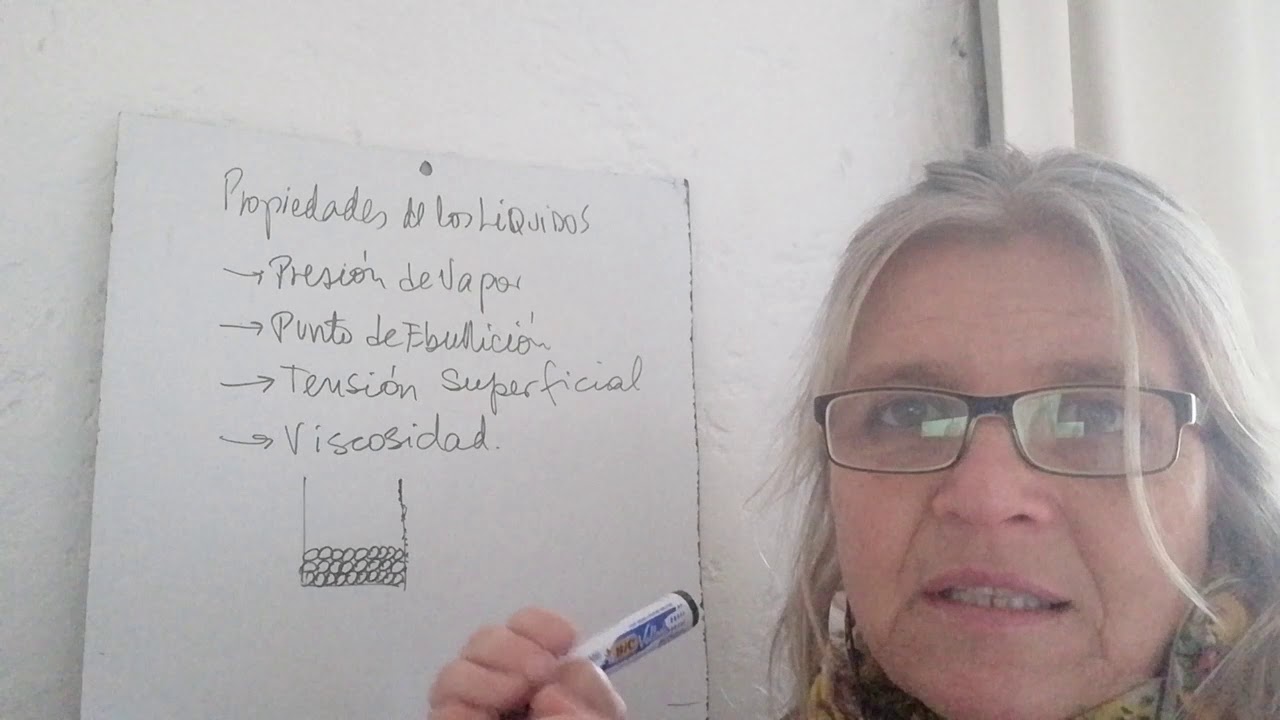 Propiedades de los LíQUIDOS
→ Presión de Vapor
→ Punto de Ebullición
→ Tensión Superficial
→ Viscosidad.
BIC